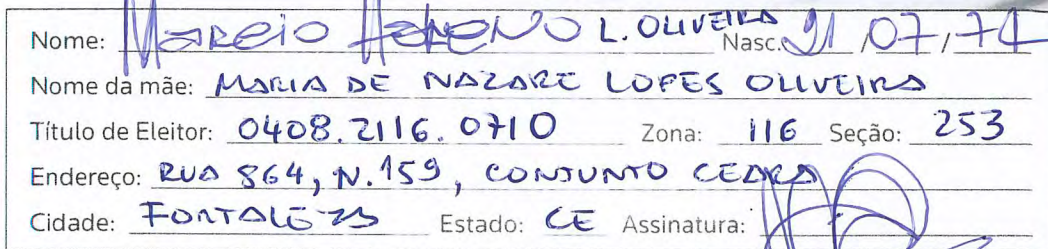 Nome: MARCIO L. OLIVEIRA Nasc. 21/07/74
Nome da mãe: MARIA DE NAZARE LOPES OLIVEIRA
Título de Eleitor: 0408.2116.0710 Zona: 116 Seção: 253
Endereço: RUA 864, N. 159, CONJUNTO CEARA
Cidade: FORTALEZA Estado: CE Assinatura: